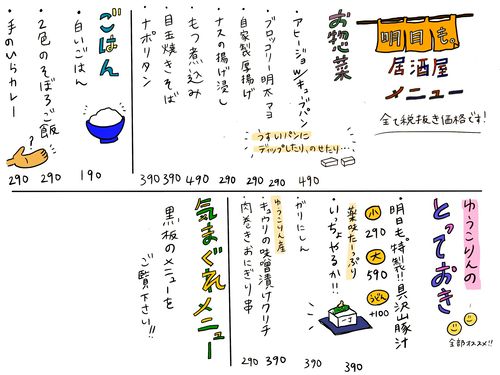 明日も。
居酒屋
メニュー
全て税抜き価格です!
お惣菜
・アヒージョw/キューブパン 490
うすいパンに
ディップしたり、のせたり…
・ブロッコリー明太マヨ 290
・自家製厚揚げ 290
・ナスの揚げ浸し 290
・もつ煮込み 490
・目玉焼きそば 390
・ナポリタン 390
ごはん
・白いごはん 190
・2色のそぼろご飯 290
・手のひらカレー 290
?
ゆうこりんの
とっておき
全部オススメ!!
・明日も。特製!!具沢山豚汁
小 290
大 590
うどん +100
薬味たーっぷり
・いっちょやるか!! 390
・ガリにしん 390
ゆうこりん産
・キュウリの味噌漬けクリチ 390
・肉巻きおにぎり串 290
気まぐれメニュー
黒板のメニューを
ご覧下さい!!